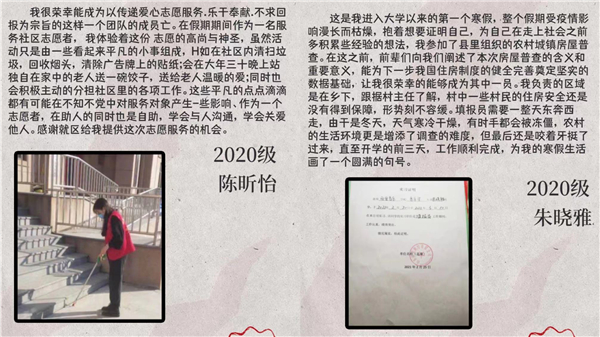 我很荣幸能成为以传递爱心志愿服务.乐干奉献.不求回
报为宗旨的这样一个团队的成员亡。在假期期间作为一名服
务社区志愿者， 我体验着这份 志愿的高尚与神圣，虽然活
动只是由一些看起来平凡的小事组成，H如在社区内清扫垃
圾，回收烟头，清除广告牌上的贴纸;会在六年三十晚上站
独自在家中的老人送一碗饺子，送给老人温暖的爱;同时也
会积极主动的分担社区里的各项工作。这些平凡的点点滴滴
都有可能在不知不党中对服务对象产生-些影响、作为一个
志愿者，在助人的同时也是自助，学会与人沟通，学会关爱
他人。感谢就区给我提供这次志愿服务的机会。
2020级
陈昕怡
这是我进入大学以来的第一个寒假，整个假期受疫情影
响漫长而枯燥，抱着想要证明自己，为自己在走上社会之前
多积累些经验的想法，我参加了县里组织的农村城镇房屋普
查。在这之前，前辈们向我们阐述了本次房屋普查的含义和
重要意义，能为下一步我国住房制度的健全完善奠定坚实的
数据基础，让我很荣幸的能够成为其中一员。我负责的区域
是在乡下，跟椐村主任了解，村中一些村民的住房安全还是
没有得到保障，形势刻不容缓。填报员需要一整天东奔西
走，由于是冬天，天气寒冷干燥，有时手都会被冻僵，农村
的生活环境更是增添了调查的难度，但最后还是咬着牙挺了
过来，直至开学的前三天，工作顺利完成，为我的寒假生活
画了一个圆满的句号。
2020级
朱晓雅